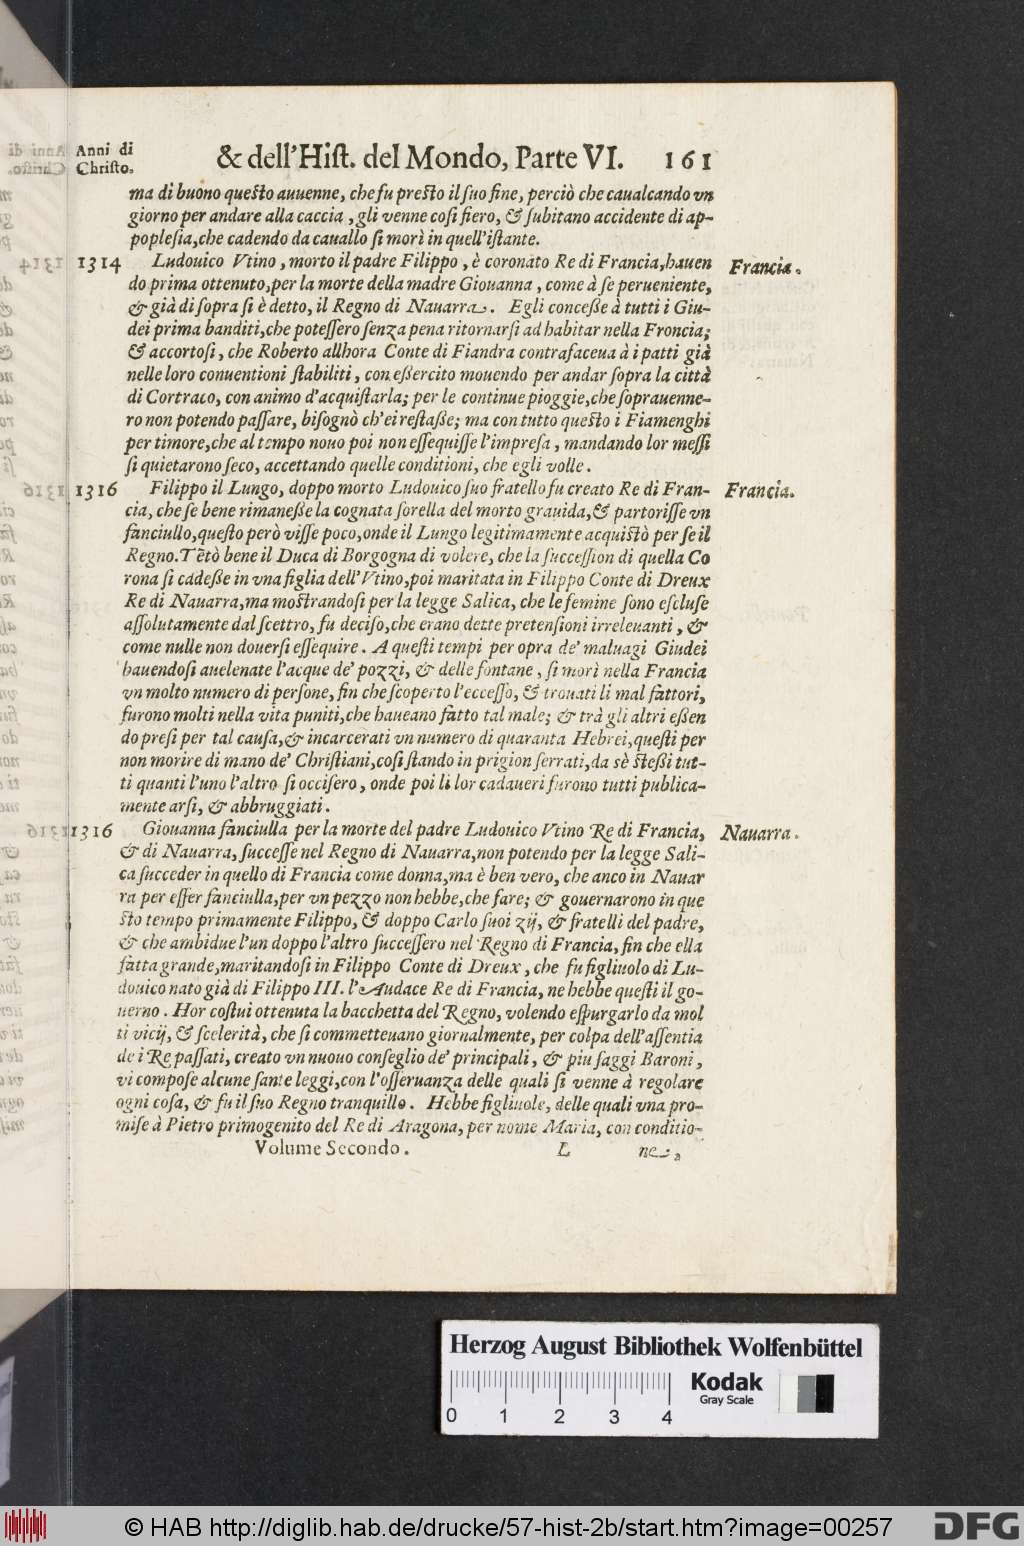 Anni di
Christo.
& dell'Hist. del Mondo, Parte VI. 161
ma di buono questo auuenne, che fu presto il suo fine, perciò che caualcando vn
giorno per andare alla caccia, gli venne cosi fiero, & subitano accidente di ap-
poplesia, che cadendo da cauallo si morì in quell'istante.
1314 Ludouico Vtino, morto il padre Filippo, è coronato Re di Francia, hauen Francia.
do prima ottenuto, per la morte della madre Giouanna, come à se perueniente,
& già di sopra si è detto, il Regno di Nauarra. Egli concesse à tutti i Giu-
dei prima banditi, che potessero senza pena ritornarsi ad habitar nella Froncia;
& accortosi, che Roberto allhora Conte di Fiandra contrafaceua à i patti già
nelle loro conuentioni stabiliti, con essercito mouendo per andar sopra la città
di Cortraco, con animo d'acquistarla; per le continue pioggie, che soprauenne-
ro non potendo passare, bisognò ch'ei restasse; ma con tutto questo i Fiamenghi
per timore, che al tempo nouo poi non essequisse l'impresa, mandando lor messi
si quietarono seco, accettando quelle conditioni, che egli volle.
1316 Filippo il Lungo, doppo morto Ludouico suo fratello fu creato Re di Fran- Francia.
cia, che se bene rimanesse la cognata sorella del morto grauida, & partorisse vn
fanciullo, questo però visse poco, onde il Lungo legitimamente acquistò per se il
Regno. Tẽtò bene il Duca di Borgogna di volere, che la succession di quella Co
rona si cadesse in vna figlia dell'Vtino, poi maritata in Filippo Conte di Dreux
Re di Nauarra, ma mostrandosi per la legge Salica, che le femine sono escluse
assolutamente dal scettro, fu deciso, che erano dette pretensioni irreleuanti, &
come nulle non douersi essequire. A questi tempi per opra de' maluagi Giudei
hauendosi auelenate l'acque de' pozzi, & delle fontane, si morì nella Francia
vn molto numero di persone, fin che scoperto l'eccesso, & trouati li mal fattori,
furono molti nella vita puniti, che haueano fatto tal male; & trà gli altri essen
do presi per tal causa, & incarcerati vn numero di quaranta Hebrei, questi per
non morire di mano de' Christiani, cosi stando in prigion serrati, da sè stessi tut-
ti quanti l'uno l'altro si occisero, onde poi li lor cadaueri furono tutti publica-
mente arsi, & abbruggiati.
1316 Giouanna fanciulla per la morte del padre Ludouico Vtino Re di Francia, Nauarra.
& di Nauarra, successe nel Regno di Nauarra, non potendo per la legge Sali-
ca succeder in quello di Francia come donna, ma è ben vero, che anco in Nauar
ra per esser fanciulla, per vn pezzo non hebbe, che fare; & gouernarono in que
sto tempo primamente Filippo, & doppo Carlo suoi zij, & fratelli del padre,
& che ambidue l'un doppo l'altro successero nel Regno di Francia, fin che ella
fatta grande, maritandosi in Filippo Conte di Dreux, che fu figliuolo di Lu-
douico nato già di Filippo III. l'Audace Re di Francia, ne hebbe questi il go-
uerno. Hor costui ottenuta la bacchetta del Regno, volendo espurgarlo da mol
ti vicij, & scelerità, che si commetteuano giornalmente, per colpa dell'assentia
de i Re passati, creato vn nuouo conseglio de' principali, & piu saggi Baroni,
vi compose alcune sante leggi, con l'osseruanza delle quali si venne à regolare
ogni cosa, & fu il suo Regno tranquillo. Hebbe figliuole, delle quali vna pro-
mise à Pietro primogenito del Re di Aragona, per nome Maria, con conditio-
Volume Secondo. L ne,
Herzog August Bibliothek Wolfenbüttel
0 1 2 3 4
Kodak
Gray Scale
© HAB http://diglib.hab.de/drucke/57-hist-2b/start.htm?image=00257
DFG